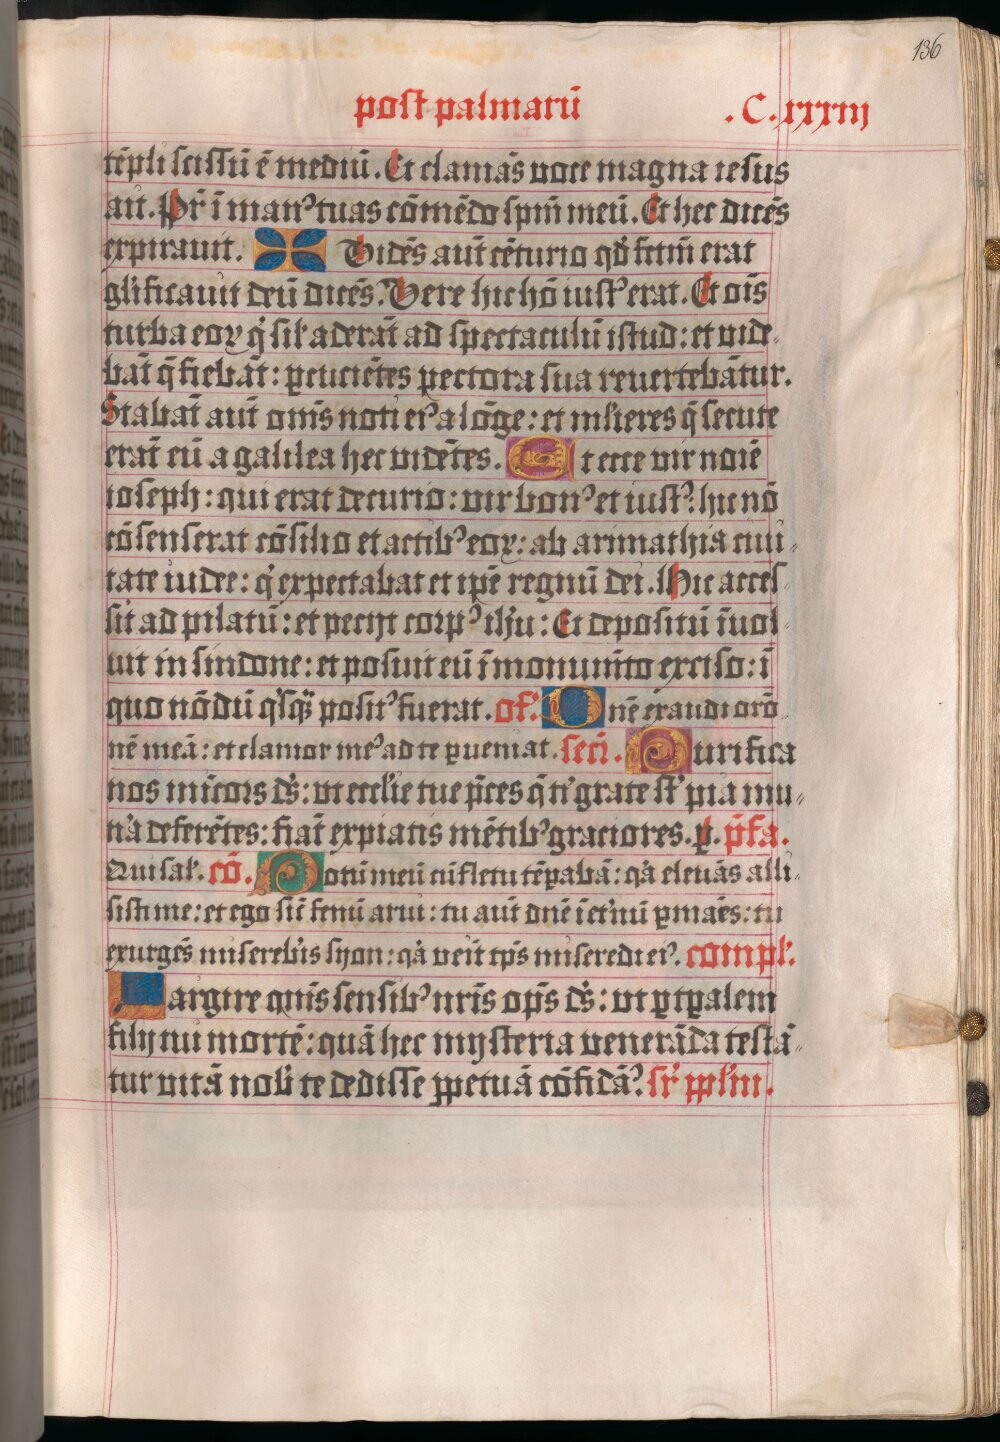 136
post palmarū .C.xxxiij
tēpli scissū ē mediū. Et clamās voce magna iesus
ait. Pr̄ ī manꝰ tuas cōmēdo spm̄ meū. Et hec dicēs
expirauit. Vidēs aut̄ cēturio qd̓ fctm̄ erat
gl̓ificauit deū dicēs. Vere hic hō iustꝰ erat. Et oīs
turba eoꝝ q̓ sil̓ aderāt ad spectaculū istud: et vide-
bāt q̄ fiebāt: ꝑcuciētes pectora sua reuertebātur.
Stabāt aut̄ om̄s noti eiꝰ a lōge: et ml̓ieres q̄ secute
erāt eū a galilea hec vidētes. Et ecce vir noīe
ioseph: qui erat decurio: vir bonꝰ et iustꝰ: hic nō
cōsenserat cōsilio et actibꝰ eoꝝ: ab arimathia ciui-
tate iudee: q̓ expectabat et ip̄e regnū dei. Hic acces-
sit ad pilatū: et pecijt corpꝰ ih̓u: Et depositū īuol-
uit in sindone: et posuit eū ī monumēto exciso: ī
quo nōdū q̓sq̓ꝫ positꝰ fuerat. of̓. Dn̄e exaudi orō-
nē meā: et clamor meꝰ ad te ꝑueniat. secr̄. Purifica
nos mīcors ds̓: vt eccl̓ie tue p̄ces q̄ ti̓ grate st̓ pia mu-
n̓a deferētes: fiāt expiatis mētibꝰ graciores. ꝑ. p̄fa.
Qui sal̓. cō. Potū meū cū fletu tēꝑabā: q̓a eleuās alli-
sisti me: et ego sic̄ fenū arui: tu aut̄ dn̄e ī et̓nū ꝑmāes: tu
exurgēs misereb̓is syon: q̓a veīt tp̄s miseredi eiꝰ. compl̓.
Largire q̄m̄s sensibꝰ nr̄is op̄s ds̓: vt ꝑ tꝑalem
filij tui mortē: quā hec mysteria venerāda testā-
tur vitā nob̓ te dedisse ꝑpetuā cōfidāꝰ. sr̓ ppl̓m.